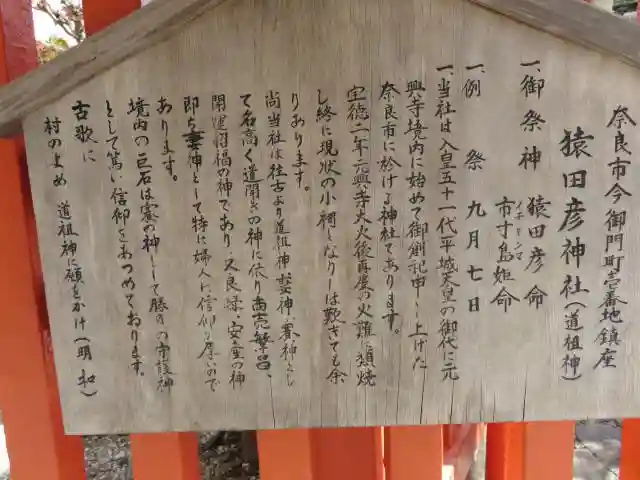 奈良市今御門町壱番地鎮座
猿田彦神社(道祖神)
一、御祭神 猿田彦命
市寸島姫命
イチキシマ
一、例祭 九月七日
一、当社は人皇五十一代平城天皇の御代に元
興寺境内に始めて御創祀申し上げた
奈良市に於ける神社であります。
宝徳二年元興寺大火後再度の火難に類焼
し終に現状の小祠となりしは歎きても余
りあります。
尚当社は往古より道祖神、妻神、賽神とし
て名高く道開きの神に依り商売繁昌、
開運招福の神であり、又良縁、安産の神
即ち妻神として特に婦人に信仰が厚いので
あります。
境内の巨石は賽の神として勝負の守護神
として篤い信仰をあつめております。
古歌に
村のよめ 道祖神に願をかけ(明和)